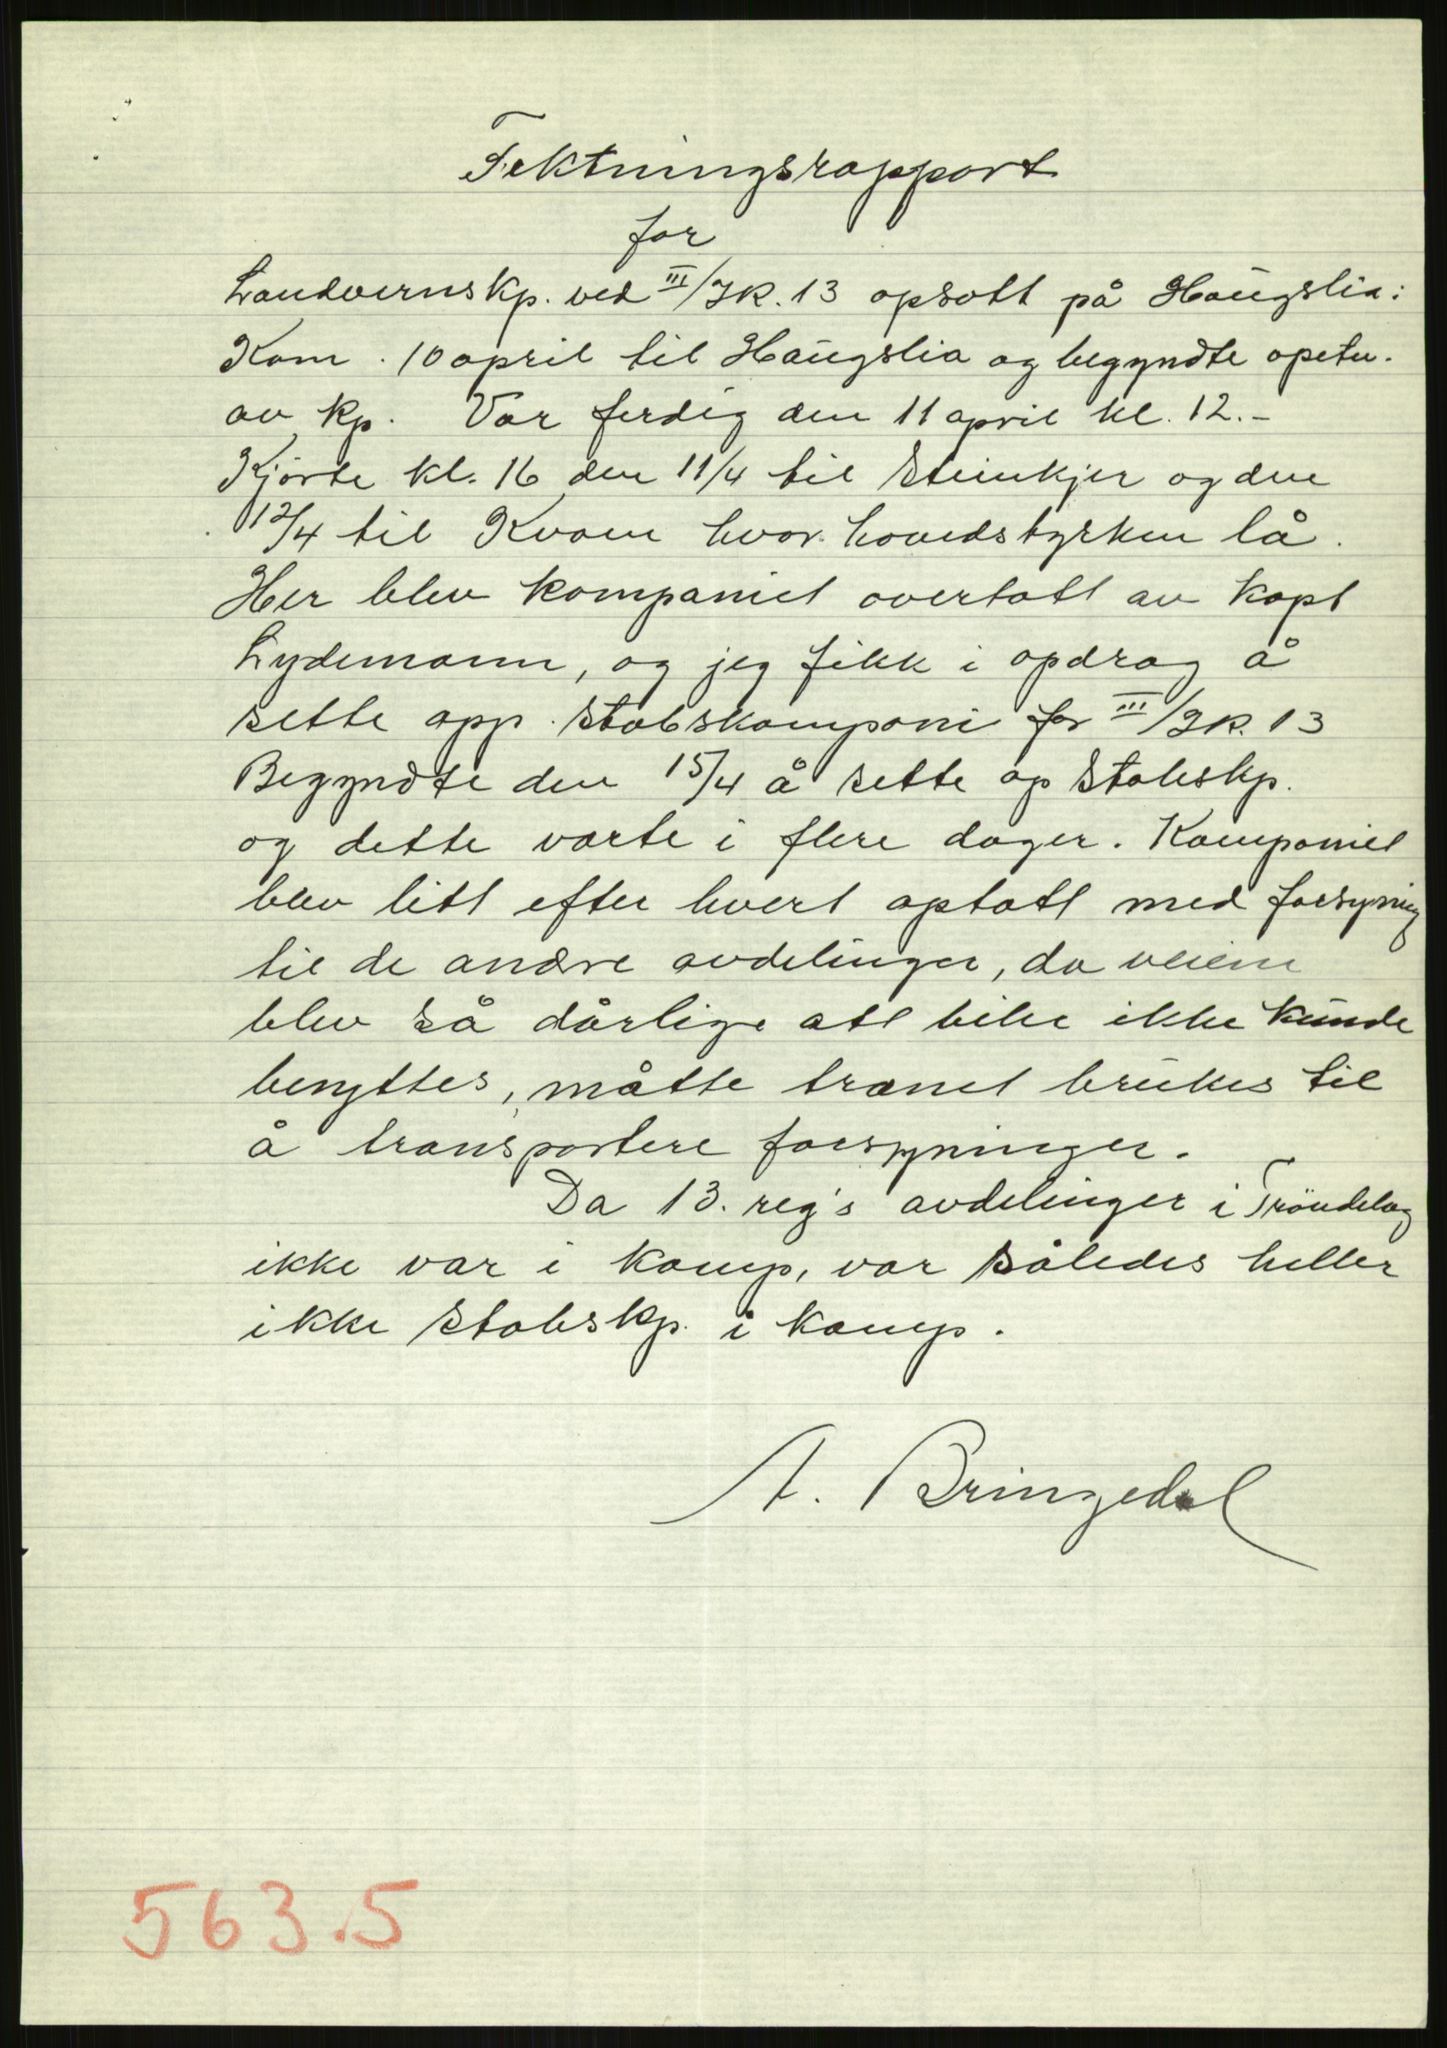 Fektningsrapport
for
Landvernskp. ved III/IR. 13 opsatt på Haugslia:
Kom . 10 april til Haugslia og begyndte opstn.
av kp. Var ferdig den 11 april kl. 12.-
Kjörte kl. 16 den 11/4 til Steinkjer og den
12/4 til Kvam hvor hovedstyrken lå.
Her blev kompaniet overtatt av Kapt
Lydemann, og jeg fikk i opdrag å
sette opp stabskompani for III/IR. 13
Begyndte den 15/4 å sette op Stabskp.
og dette varte i flere dager. Kompaniet
blev litt efter hvert optatt med forsyning
til de andre avdelinger, da veiene
blev så dårlige att biler ikke kunde
benyttes, måtte trenet brukes til
å transportere forsyninger.
Da 13. reg's avdelinger i Tröndelag
ikke var i kamp, var således heller
ikke Stabskp. i kamp.
A. Bringedal
563.5